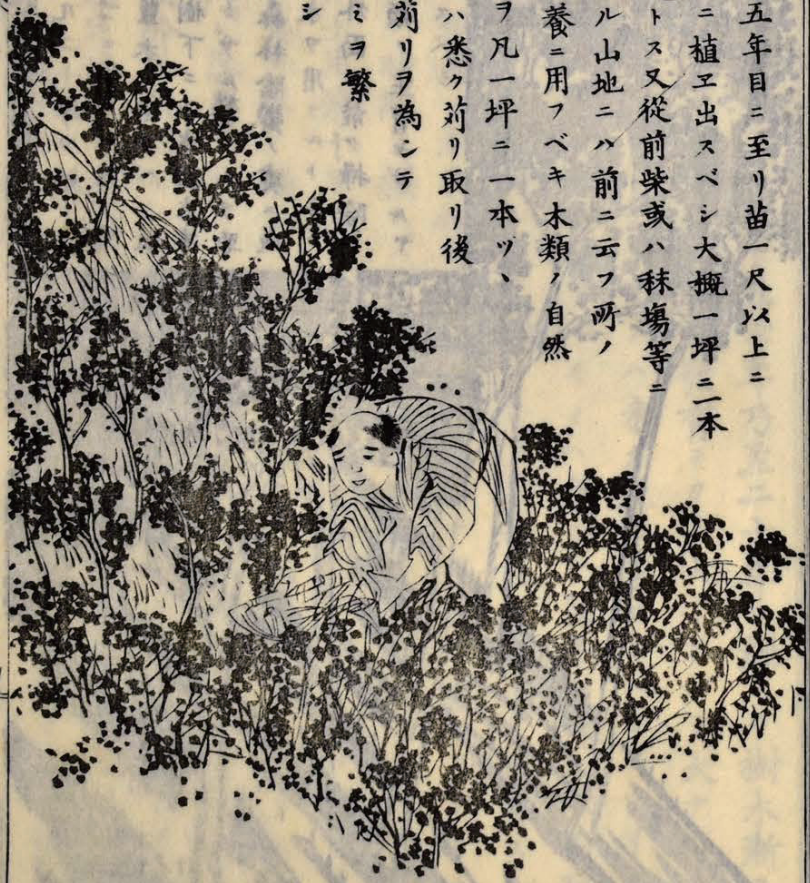 五年目ニ至リ苗一尺以上ニ
ニ植ヱ出スベシ大概一坪ニ一本
トス又從前柴或ハ秣塲等ニ
ル山地ニハ前ニ云フ所ノ
養ニ用フベキ木類ノ自然
ヲ凡一坪ニ一本ヅヽ
ハ悉ク苅リ取リ後
苅リヲ為シテ
ミヲ繁
シ